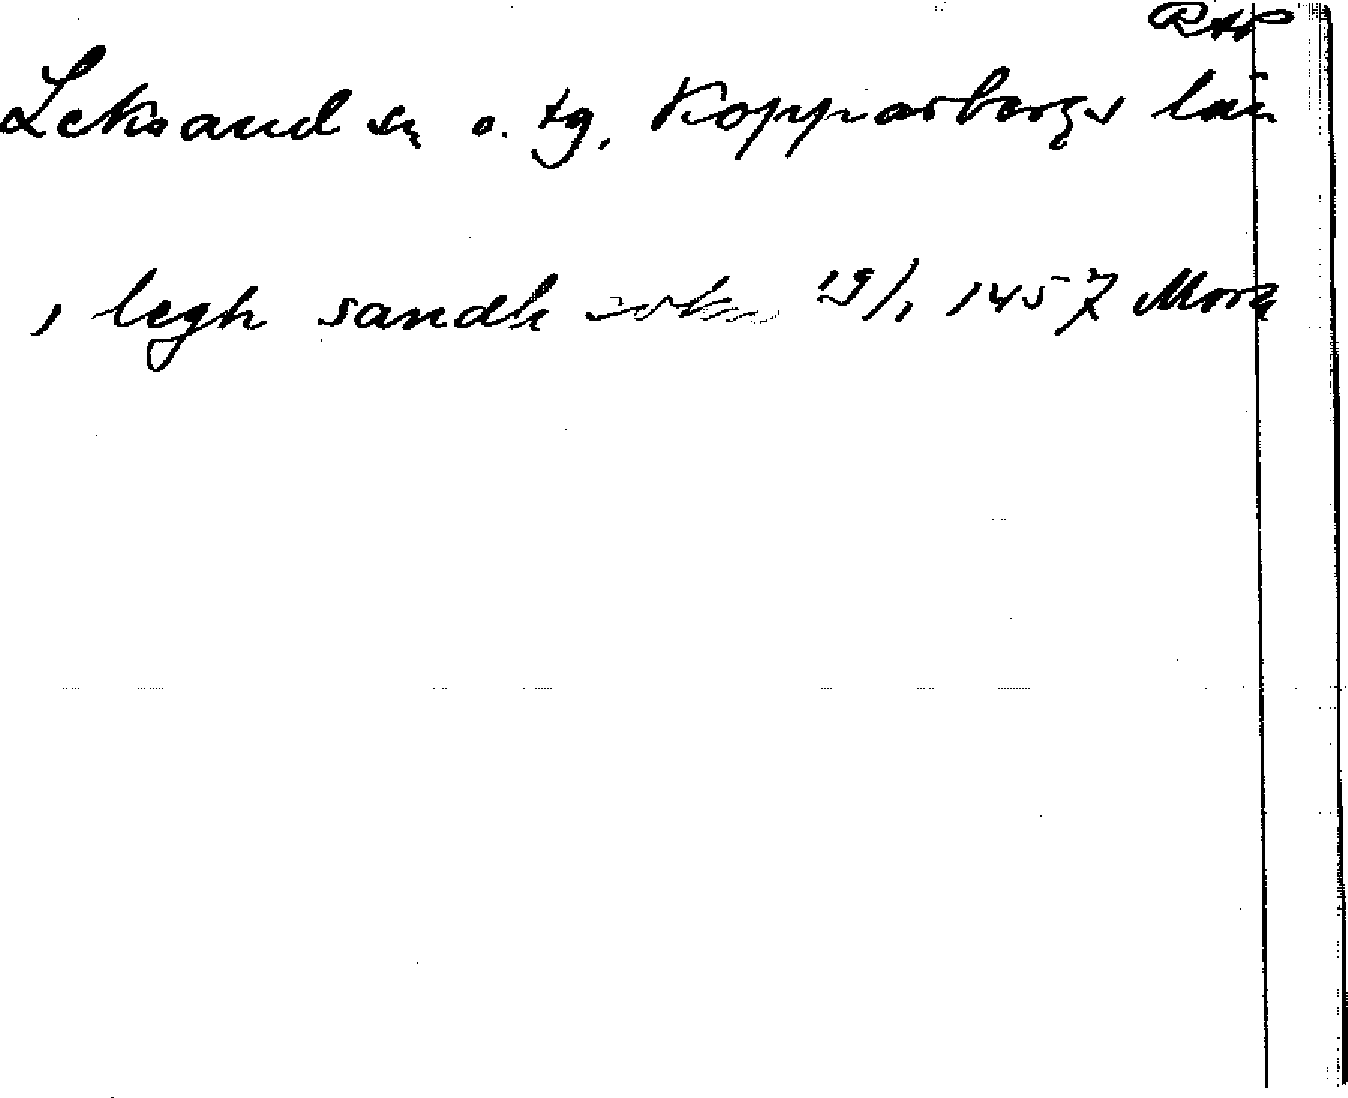 RAP
Leksand sn o. tg. Kopparbergs län
i legh sandh sokn 19/1 1457 Mora